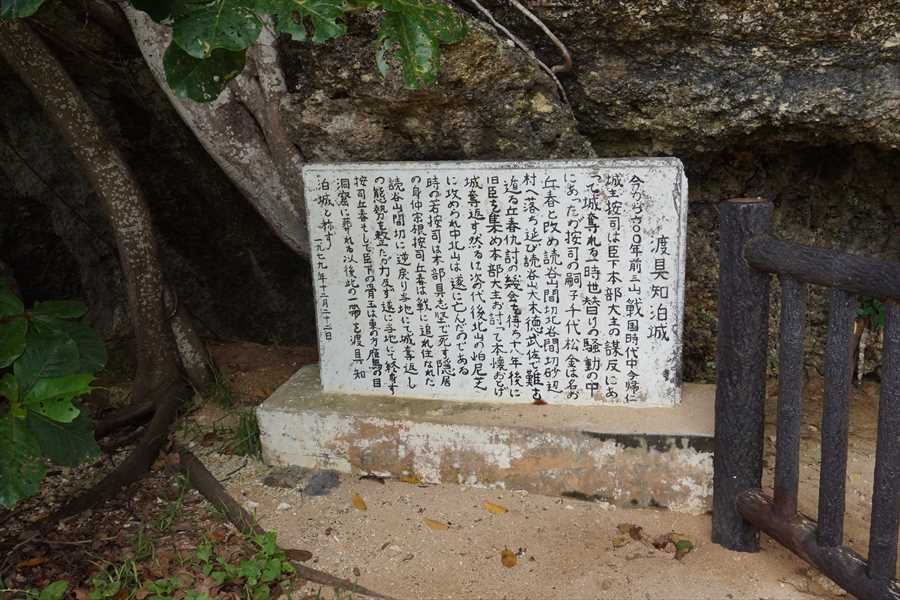 渡具知泊城
今から六〇〇年前三山戦国時代中今帰仁
城主按司は臣下本部大主の謀反にあ
って城奪れる時世替りの騒動の中
にあったが按司の嗣子千代松金は名お
丘春と改め読谷山間切北谷間切砂辺
村へ落ち延び読谷山大木徳武佐で難お
逃る丘春仇討の機会を得ん十八年後に
旧臣を集め本部大主お討って本懐おとげ
城奪返す然るに次の代後北山の怕尼芝
に攻められ中北山は遂に亡んだのである
時の若按司は本部具志堅で死す隠居
の身仲宗根按司丘春は戦に追れ住なれた
読谷山間切に逆戻り当地にて城奪返し
の態勢を整たが力及す遂に当地にて終着す
按司丘春そして臣下の骨王は東の方雁馬の目
洞窟に葬れる以後此の一帯を渡具知
泊城と称す 一九七九年十二月二十二日